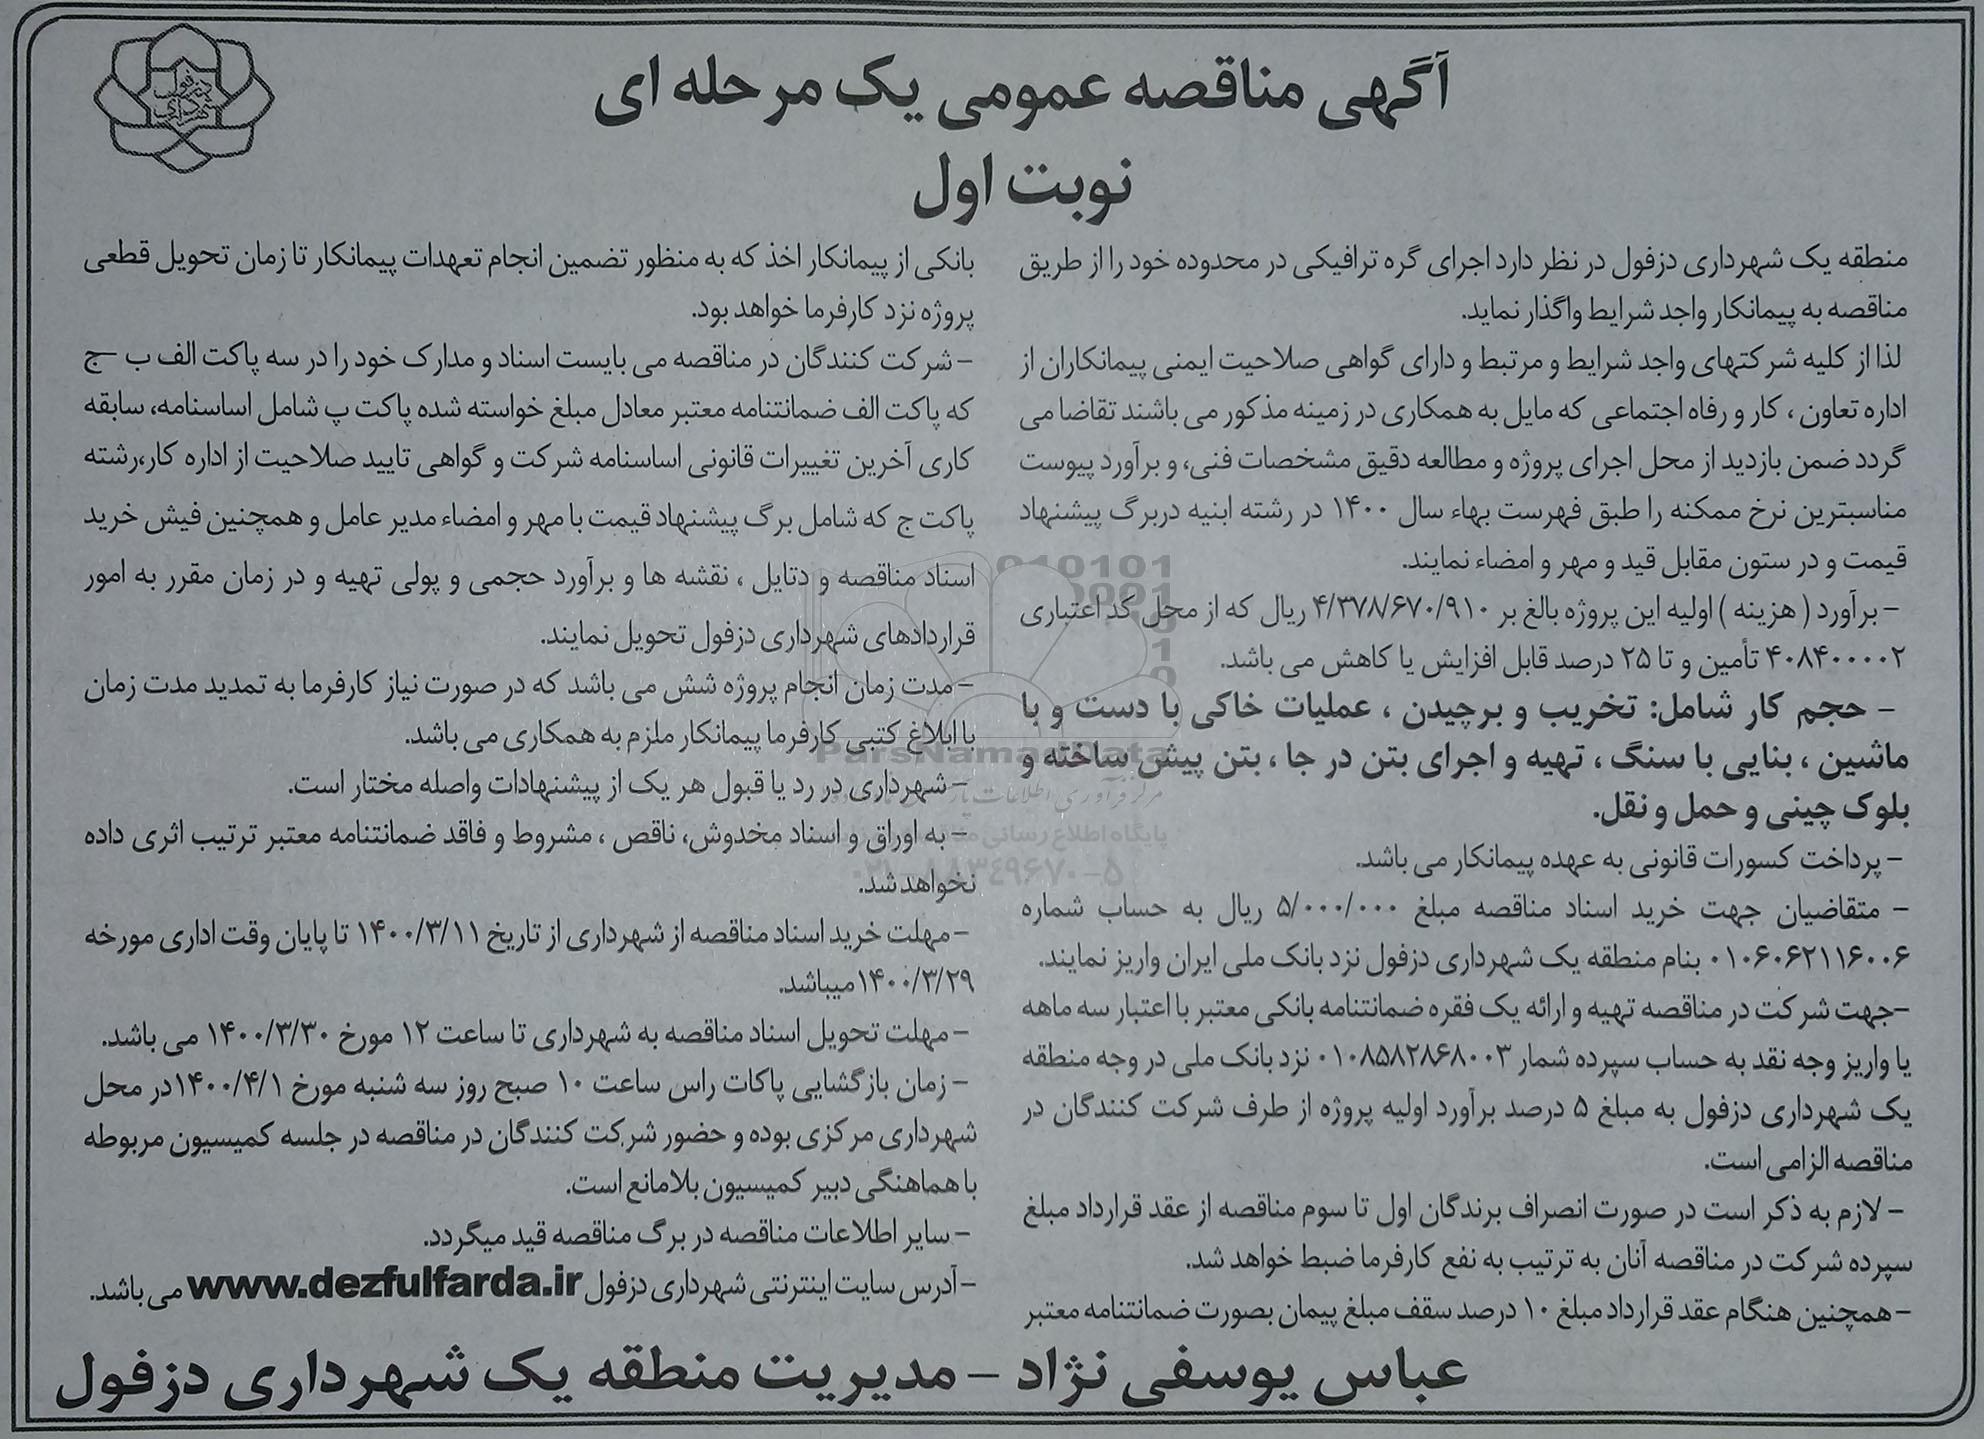 آگهی مناقصه عمومی یک مرحله ای
نوبت اول
منطقه یک شهرداری دزفول در نظر دارد اجرای گره ترافیکی در محدوده خود را از طریق
مناقصه به پیمانکار واجد شرایط واگذار نماید.
لذا از کلیه شرکتهای واجد شرایط و مرتبط و دارای گواهی صلاحیت ایمنی پیمانکاران از
اداره تعاون ، کار و رفاه اجتماعی که مایل به همکاری در زمینه مذکور می باشند تقاضا می
گردد ضمن بازدید از محل اجرای پروژه و مطالعه دقیق مشخصات فنی، و برآورد پیوست
مناسبترین نرخ ممکنه را طبق فهرست بهاء سال ۱۴۰۰ در رشته ابنیه دربرگ پیشنهاد
قیمت و در ستون مقابل قید و مهر و امضاء نمایند.
- برآورد ( هزینه ) اولیه این پروژه بالغ بر ۴/۳۷۸/۶۷۰/۹۱۰ ریال که از محل کد اعتباری
۴۰۸۴۰۰۰۰۲ تأمین و تا ۲۵ درصد قابل افزایش یا کاهش می باشد.
- حجم کار شامل: تخریب و برچیدن ، عملیات خاکی با دست و با
ماشین ، بنایی با سنگ ، تهیه و اجرای بتن در جا ، بتن پیش ساخته و
بلوک چینی و حمل و نقل.
- پرداخت کسورات قانونی به عهده پیمانکار می باشد.
- متقاضیان جهت خرید اسناد مناقصه مبلغ ۵/۰۰۰/۰۰۰ ریال به حساب شماره
۰۱۰۶۰۶۲۱۱۶۰۰۶ بنام منطقه یک شهرداری دزفول نزد بانک ملی ایران واریز نمایند.
-جهت شرکت در مناقصه تهیه و ارائه یک فقره ضمانتنامه بانکی معتبر با اعتبار سه ماهه
یا واریز وجه نقد به حساب سپرده شمار ۰۱۰۸۵۸۲۸۶۸۰۰۳ نزد بانک ملی در وجه منطقه
یک شهرداری دزفول به مبلغ ۵ درصد برآورد اولیه پروژه از طرف شرکت کنندگان در
مناقصه الزامی است.
- لازم به ذکر است در صورت انصراف برندگان اول تا سوم مناقصه از عقد قرارداد مبلغ
سپرده شرکت در مناقصه آنان به ترتیب به نفع کارفرما ضبط خواهد شد.
- همچنین هنگام عقد قرارداد مبلغ ۱۰ درصد سقف مبلغ پیمان بصورت ضمانتنامه معتبر
بانکی از پیمانکار اخذ که به منظور تضمین انجام تعهدات پیمانکار تا زمان تحویل قطعی
پروژه نزد کارفرما خواهد بود.
- شرکت کنندگان در مناقصه می بایست اسناد و مدارک خود را در سه پاکت الف ب -ج
که پاکت الف ضمانتنامه معتبر معادل مبلغ خواسته شده پاکت پ شامل اساسنامه، سابقه
کاری آخرین تغییرات قانونی اساسنامه شرکت و گواهی تایید صلاحیت از اداره کار،رشته
پاکت ج که شامل برگ پیشنهاد قیمت با مهر و امضاء مدیر عامل و همچنین فیش خرید
اسناد مناقصه و دتایل ، نقشه ها و برآورد حجمی و پولی تهیه و در زمان مقرر به امور
قراردادهای شهرداری دزفول تحویل نمایند.
- مدت زمان انجام پروژه شش می باشد که در صورت نیاز کارفرما به تمدید مدت زمان
با ابلاغ کتبی کارفرما پیمانکار ملزم به همکاری می باشد.
- شهرداری در رد یا قبول هر یک از پیشنهادات واصله مختار است.
- به اوراق و اسناد مخدوش، ناقص ، مشروط و فاقد ضمانتنامه معتبر ترتیب اثری داده
نخواهد شد.
- مهلت خرید اسناد مناقصه از شهرداری از تاریخ ۱۴۰۰/۳/۱۱ تا پایان وقت اداری مورخه
۱۴۰۰/۳/۲۹ میباشد.
- مهلت تحویل اسناد مناقصه به شهرداری تا ساعت ۱۲ مورخ ۱۴۰۰/۳/۳۰ می باشد.
- زمان بازگشایی پاکات راس ساعت ۱۰ صبح روز سه شنبه مورخ ۱۴۰۰/۴/۱در محل
شهرداری مرکزی بوده و حضور شرکت کنندگان در مناقصه در جلسه کمیسیون مربوطه
با هماهنگی دبیر کمیسیون بلامانع است.
- سایر اطلاعات مناقصه در برگ مناقصه قید میگردد.
- آدرس سایت اینترنتی شهرداری دزفول www.dezfulfarda.ir می باشد.
عباس یوسفی نژاد - مدیریت منطقه یک شهرداری دزفول
ParsNamadData